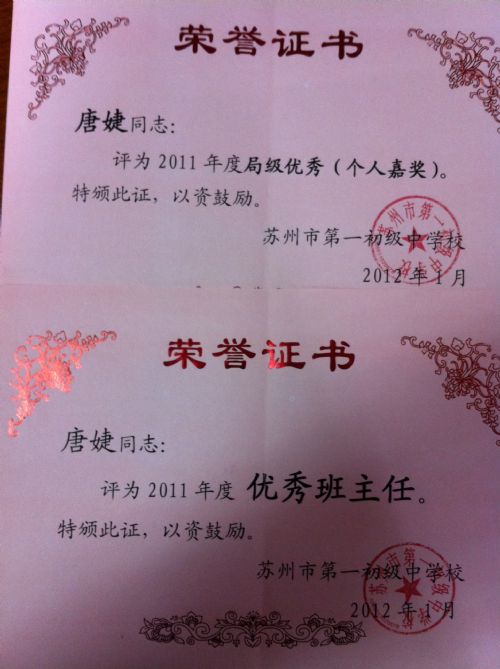 荣誉证书
唐婕同志：
评为 2011 年度局级优秀（个人嘉奖）。
特颁此证，以资鼓励。
苏州市第一初级中学校
2012 年 1 月
荣誉证书
唐婕同志：
评为 2011 年度 优秀班主任。
特颁此证，以资鼓励。
苏州市第一初级中学校
2012 年 1 月